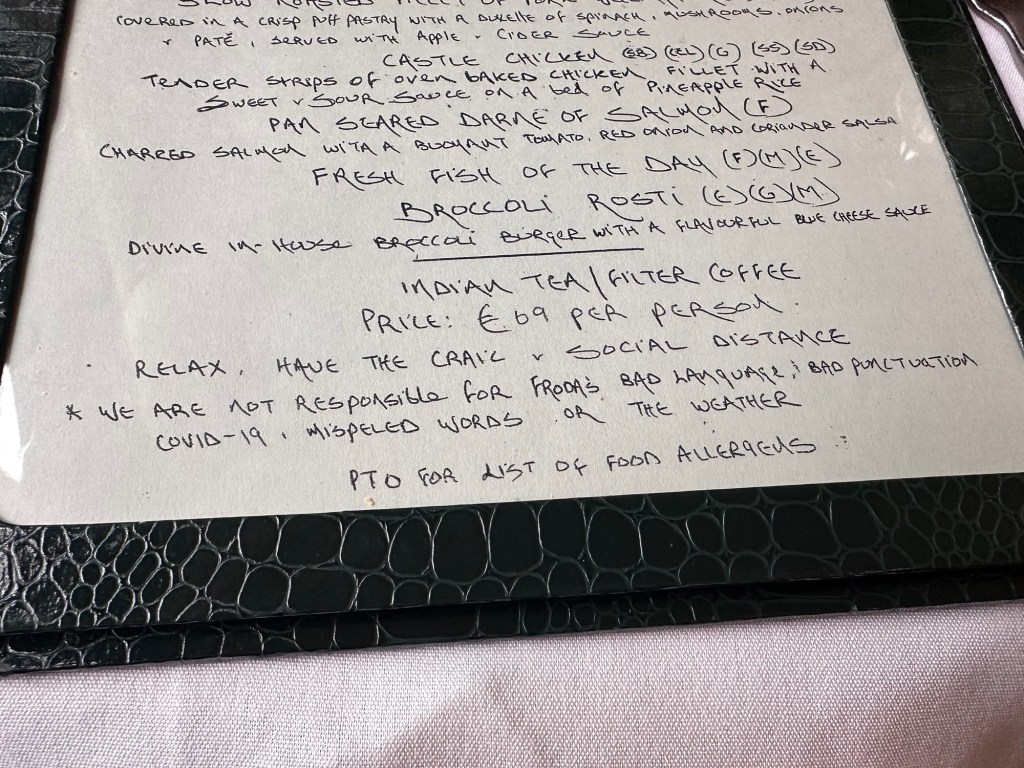 SLOW ROASTED FILLET OF PORK
COVERED IN A CRISP PUFF PASTRY WITH A DUXELLE OF SPINACH, MUSHROOMS, ONIONS
+ PATÉ, SERVED WITH APPLE + CIDER SAUCE
CASTLE CHICKEN (SB) (CEL) (G) (SS) (SD)
TENDER STRIPS OF OVEN BAKED CHICKEN FILLET WITH A
SWEET + SOUR SAUCE ON A BED OF PINEAPPLE RICE
PAN SEARED DARNE OF SALMON (F)
CHARRED SALMON WITH A BUOYANT TOMATO, RED ONION AND CORIANDER SALSA
FRESH FISH OF THE DAY (F)(M)(E)
BROCCOLI ROSTI (E)(G)(M)
DIVINE IN-HOUSE BROCCOLI BURGER WITH A FLAVOURFUL BLUE CHEESE SAUCE
INDIAN TEA/FILTER COFFEE
PRICE: €69 PER PERSON.
RELAX, HAVE THE CRAIC + SOCIAL DISTANCE
* WE ARE NOT RESPONSIBLE FOR FRODA'S BAD LANGUAGE; BAD PUNCTUATION
COVID-19, MISPELED WORDS OR THE WEATHER
PTO FOR LIST OF FOOD ALLERGENS